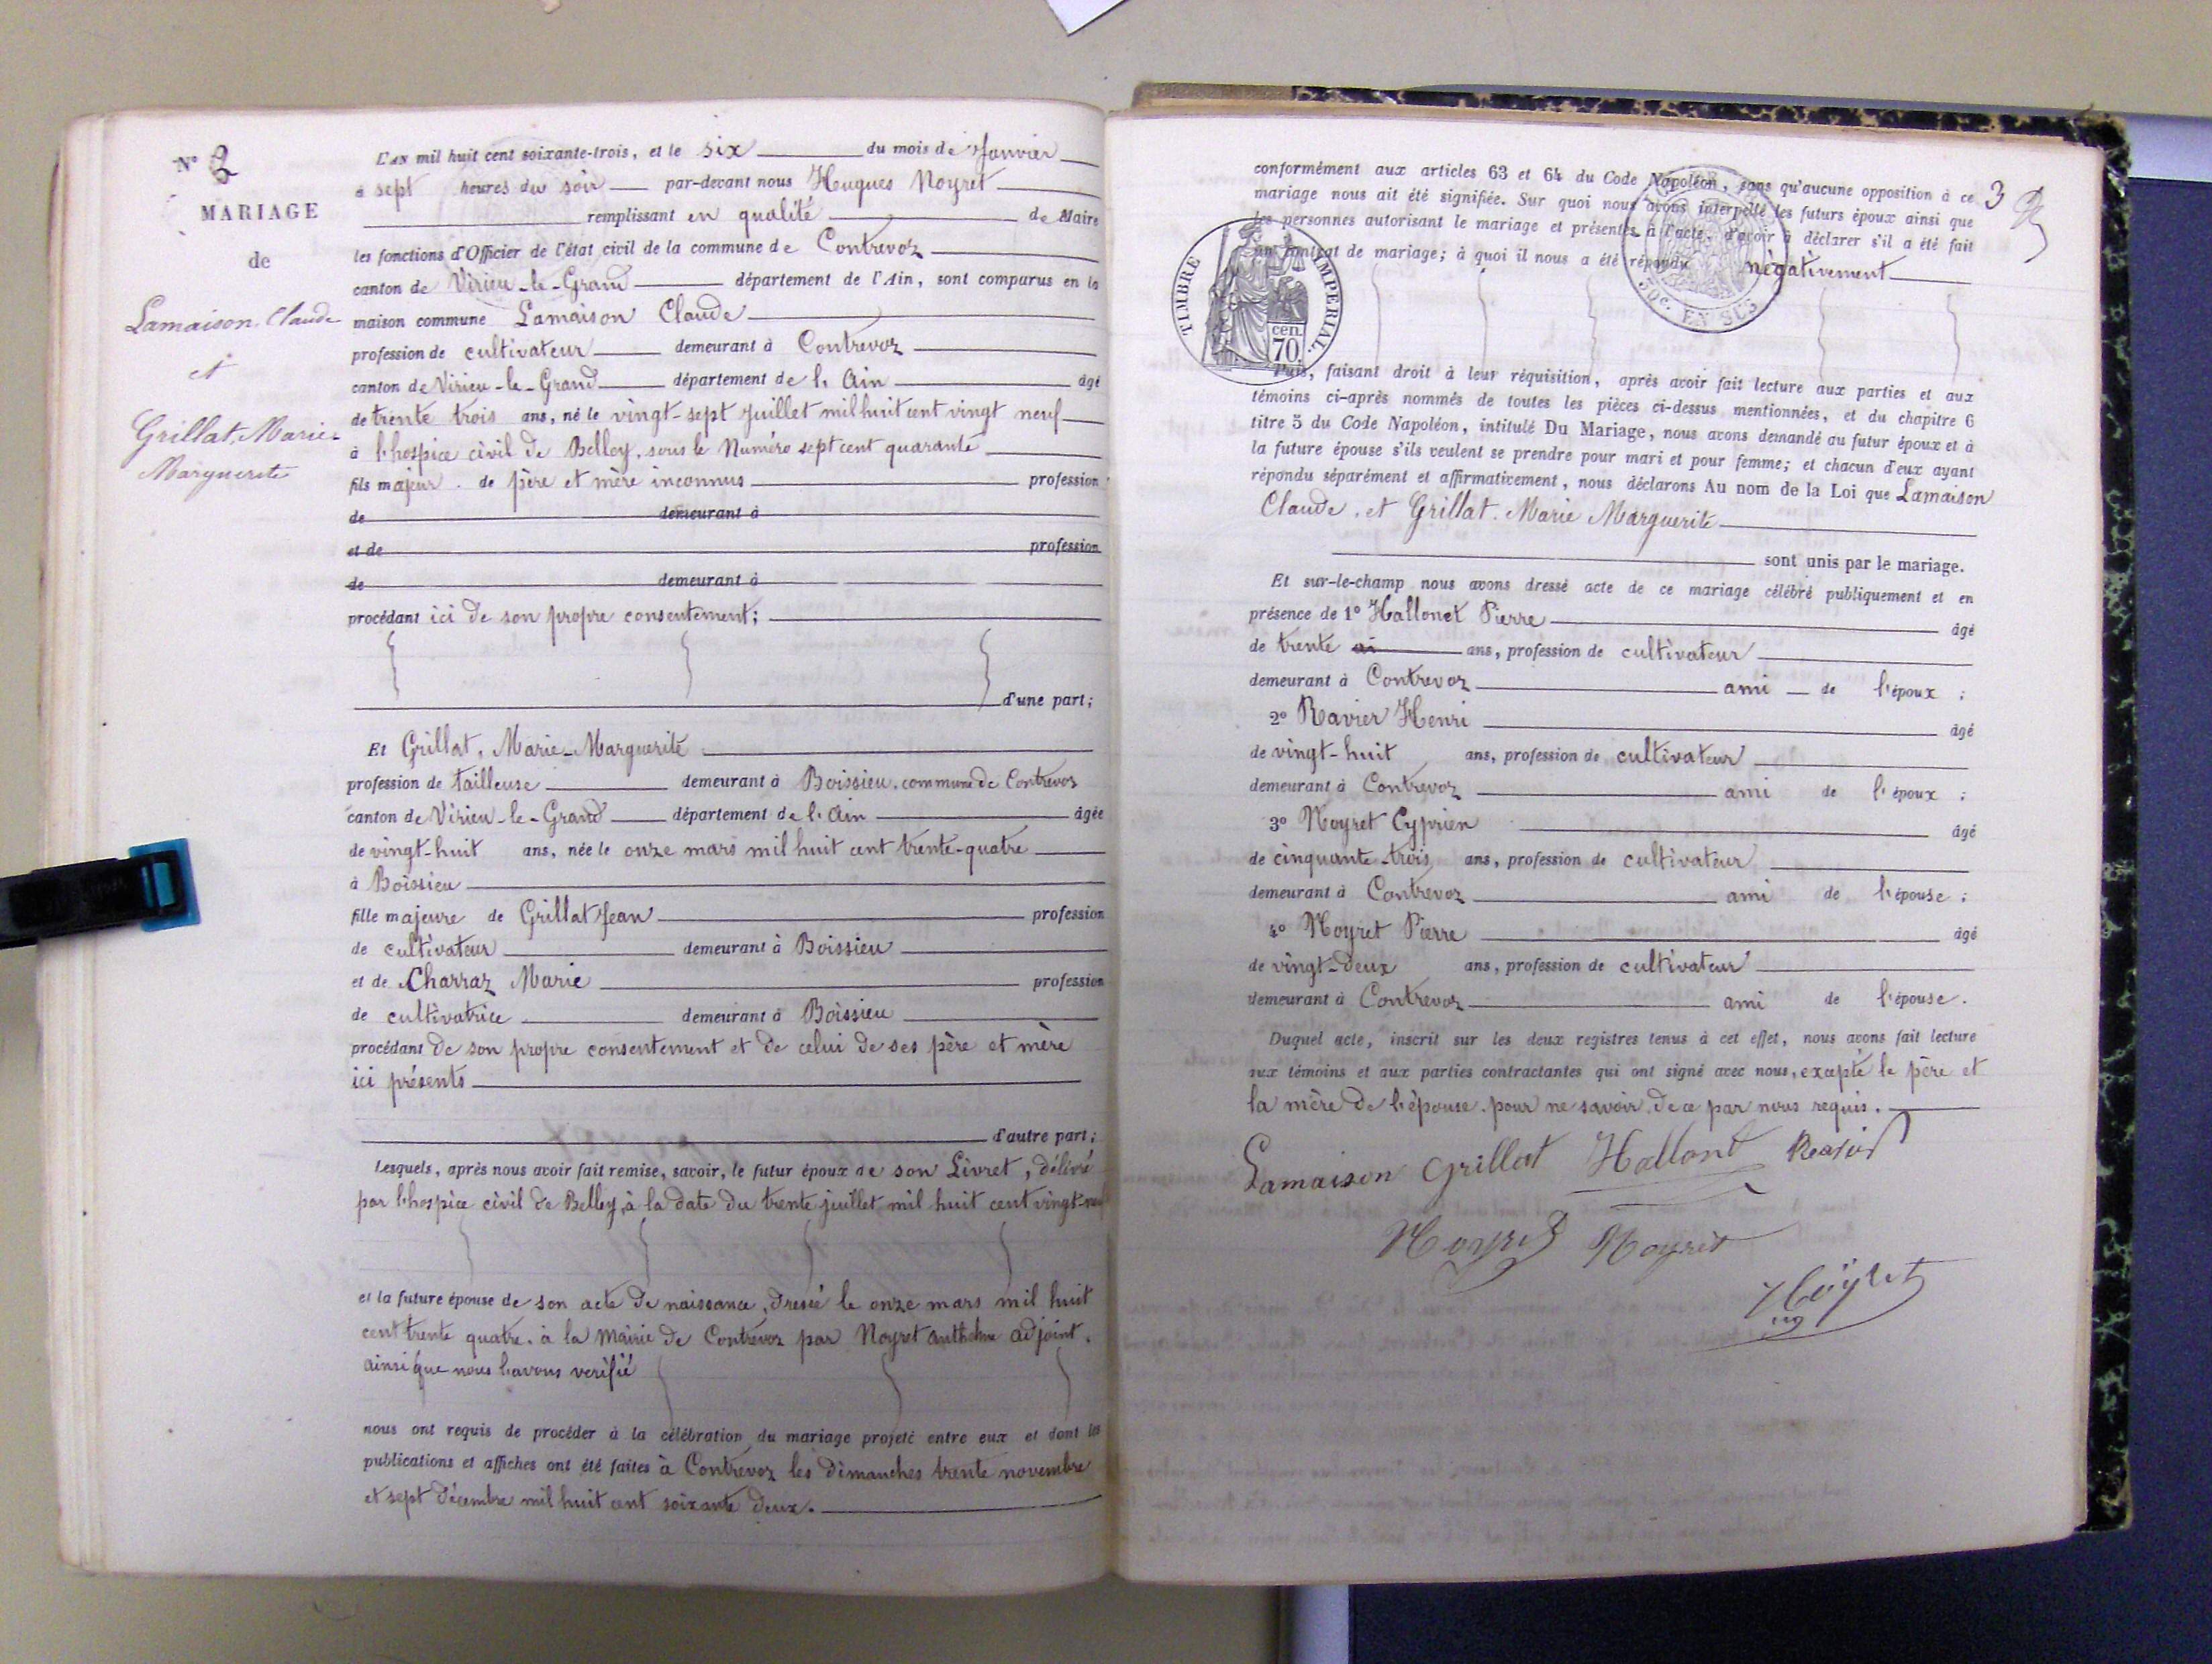 N° 2
MARIAGE
de
Lamaison Claude
et
Grillat, Marie-
Marguerite
L'AN mil huit cent soixante-trois, et le six du mois de Janvier
à sept heures du soir par-devant nous Hugues Noyret
remplissant en qualité de Maire
les fonctions d'Officier de l'état civil de la commune de Contrevoz
canton de Virieu-le-Grand département de l'Ain, sont comparus en la
maison commune Lamaison Claude
profession de cultivateur demeurant à Contrevoz
canton de Virieu-le-Grand département de l'Ain âgé
de trente trois ans, né le vingt-sept juillet mil huit cent vingt neuf
à l'hospice civil de Belley, sous le Numéro sept cent quarante
fils majeur de père et mère inconnus profession
de demeurant à
et de profession
de demeurant à
procédant ici de son propre consentement;
d'une part;
Et Grillat, Marie-Marguerite
profession de tailleuse demeurant à Boissieu, commune de Contrevoz
canton de Virieu-le-Grand département de l'Ain âgée
de vingt-huit ans, née le onze mars mil huit cent trente-quatre
à Boissieu
fille majeure de Grillat Jean profession
de cultivateur demeurant à Boissieu
et de Charraz Marie profession
de cultivatrice demeurant à Boissieu
procédant de son propre consentement et de celui de ses père et mère
ici présents
d'autre part;
Lesquels, après nous avoir fait remise, savoir, le futur époux de son Livret, délivré
par l'hospice civil de Belley, à la date du trente juillet mil huit cent vingt-neuf
et la future épouse de son acte de naissance, dressé le onze mars mil huit
cent trente quatre, à la Mairie de Contrevoz par Noyret Anthelme adjoint,
ainsi que nous l'avons vérifié
nous ont requis de procéder à la célébration du mariage projeté entre eux et dont les
publications et affiches ont été faites à Contrevoz les dimanches trente novembre
et sept décembre mil huit cent soixante deux.
3
conformément aux articles 63 et 64 du Code Napoléon, sans qu'aucune opposition à ce
mariage nous ait été signifiée. Sur quoi nous avons interpellé les futurs époux ainsi que
les personnes autorisant le mariage et présentes à l'acte, d'avoir à déclarer s'il a été fait
un contrat de mariage; à quoi il nous a été répondu négativement
TIMBRE IMPERIAL.
cen.
70
50c. EN SUS
Puis, faisant droit à leur réquisition, après avoir fait lecture aux parties et aux
témoins ci-après nommés de toutes les pièces ci-dessus mentionnées, et du chapitre 6
titre 5 du Code Napoléon, intitulé Du Mariage, nous avons demandé au futur époux et à
la future épouse s'ils veulent se prendre pour mari et pour femme; et chacun d'eux ayant
répondu séparément et affirmativement, nous déclarons Au nom de la Loi que Lamaison
Claude, et Grillat. Marie Marguerite
sont unis par le mariage.
Et sur-le-champ nous avons dressé acte de ce mariage célébré publiquement et en
présence de 1° Hallonet Pierre âgé
de trente ans, profession de cultivateur
demeurant à Contrevoz ami de l'époux;
2° Ravier Henri âgé
de vingt-huit ans, profession de cultivateur
demeurant à Contrevoz ami de l'époux;
3° Noyret Cyprien âgé
de cinquante-trois ans, profession de cultivateur
demeurant à Contrevoz ami de l'épouse;
4° Noyret Pierre âgé
de vingt-deux ans, profession de cultivateur
demeurant à Contrevoz ami de l'épouse.
Duquel acte, inscrit sur les deux registres tenus à cet effet, nous avons fait lecture
aux témoins et aux parties contractantes qui ont signé avec nous, excepté le père et
la mère de l'épouse, pour ne savoir, de ce par nous requis.
Lamaison Grillat Hallonet Ravier
Noyret Noyret
Noyret